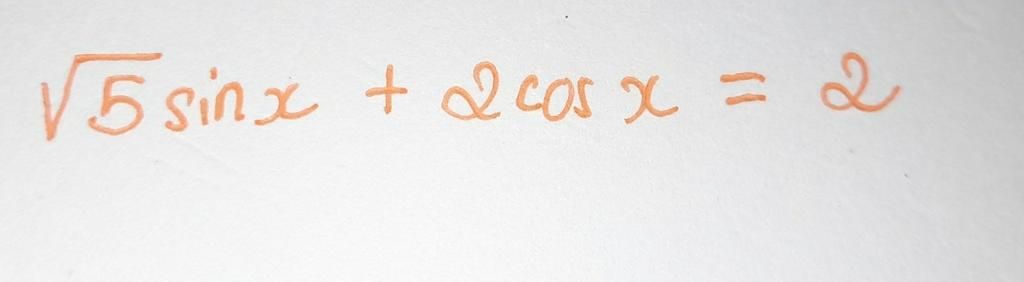 √5 sin x + 2 cos x = 2